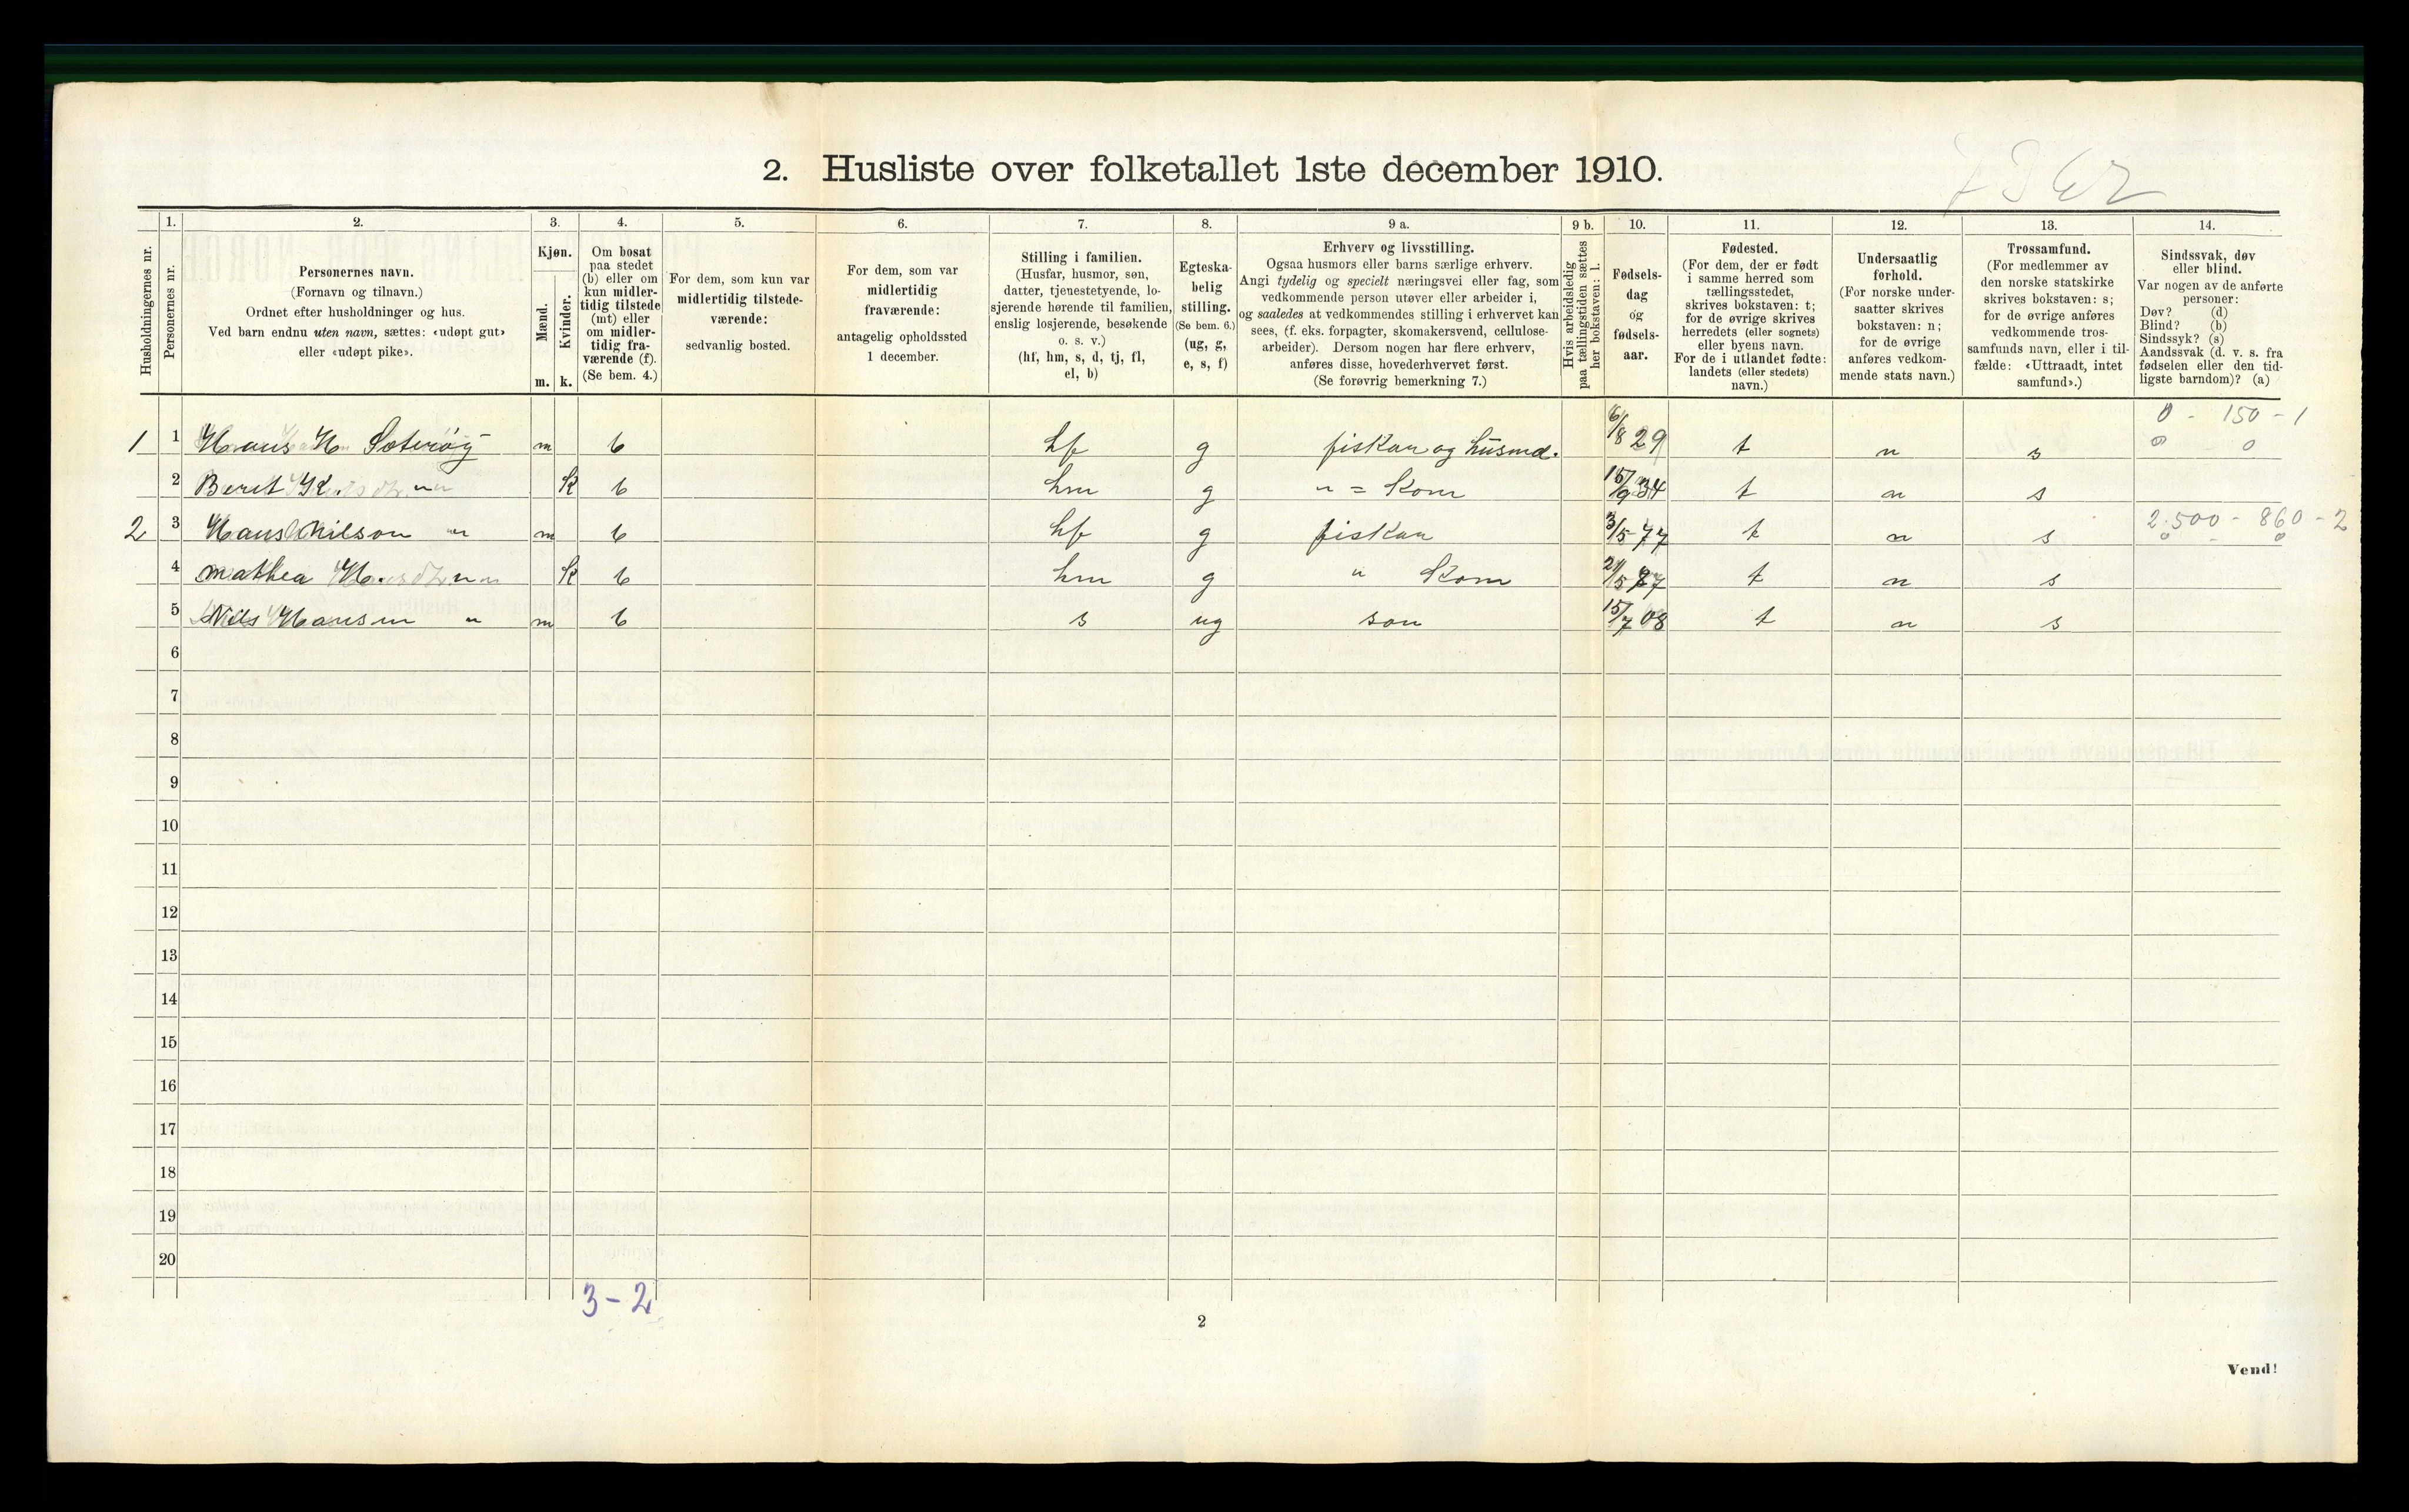 2. Husliste over folketallet 1ste december 1910.
Husholdningernes nr.
1.
Personernes nr.
2.
Personernes navn.
(Fornavn og tilnavn.)
Ordnet efter husholdninger og hus.
Ved barn endnu uten navn, sættes: «udøpt gut»
eller «udøpt pike».
3.
Kjøn.
Mænd.
Kvinder.
m. k.
4.
Om bosat
paa stedet
(b) eller om
kun midler-
tidig tilstede
(mt) eller
om midler-
tidig fra-
værende (f).
(Se bem. 4.)
5.
For dem, som kun var
midlertidig tilstede-
værende:
sedvanlig bosted.
6.
For dem, som var
midlertidig
fraværende:
antagelig opholdssted
1 december.
7.
Stilling i familien.
(Husfar, husmor, søn,
datter, tjenestetyende, lo-
sjerende hørende til familien,
enslig losjerende, besøkende
o. s. v.)
(hf, hm, s, d, tj, fl,
el, b)
8.
Egteska-
belig
stilling.
(Se bem. 6.)
(ug, g,
e, s, f)
9 a.
Erhverv og livsstilling.
Ogsaa husmors eller barns særlige erhverv.
Angi tydelig og specielt næringsvei eller fag, som
vedkommende person utøver eller arbeider i,
og saaledes at vedkommendes stilling i erhvervet kan
sees, (f. eks. forpagter, skomakersvend, cellulose-
arbeider). Dersom nogen har flere erhverv,
anføres disse, hovederhvervet først.
(Se forøvrig bemerkning 7.)
9 b.
Hvis arbeidsledig
paa tællingstiden sættes
her bokstaven: l.
10.
Fødsels-
dag
og
fødsels-
aar.
11.
Fødested.
(For dem, der er født
i samme herred som
tællingsstedet,
skrives bokstaven: t;
for de øvrige skrives
herredets (eller sognets)
eller byens navn.
For de i utlandet fødte:
landets (eller stedets)
navn.)
12.
Undersaatlig
forhold.
(For norske under-
saatter skrives
bokstaven: n;
for de øvrige
anføres vedkom-
mende stats navn.)
13.
Trossamfund.
(For medlemmer av
den norske statskirke
skrives bokstaven: s;
for de øvrige anføres
vedkommende tros-
samfunds navn, eller i til-
fælde: «Uttraadt, intet
samfund».)
14.
Sindssvak, døv
eller blind.
Var nogen av de anførte
personer:
Døv? (d)
Blind? (b)
Sindssyk? (s)
Aandssvak (d. v. s. fra
fødselen eller den tid-
ligste barndom)? (a)
0 - 150 - 1
0 0
1 1 Hans H. Soterøy m b hf g fisker og husmd. 6/8 29 t n s
2 Berit K. " k b hm g " = Kone 15/9 34 t n s
2.500 - 860 - 2
0 - 0
2 3 Hans Nilson " m b hf g fisker 3/5 77 t n s
4 mathea H. " k b hm g " Kone 21/5 87 t n s
5 Nils Hansen " m b s ug son 15/7 08 t n s
6
7
8
9
10
11
12
13
14
15
16
17
18
19
20
3 - 2
2
Vend!